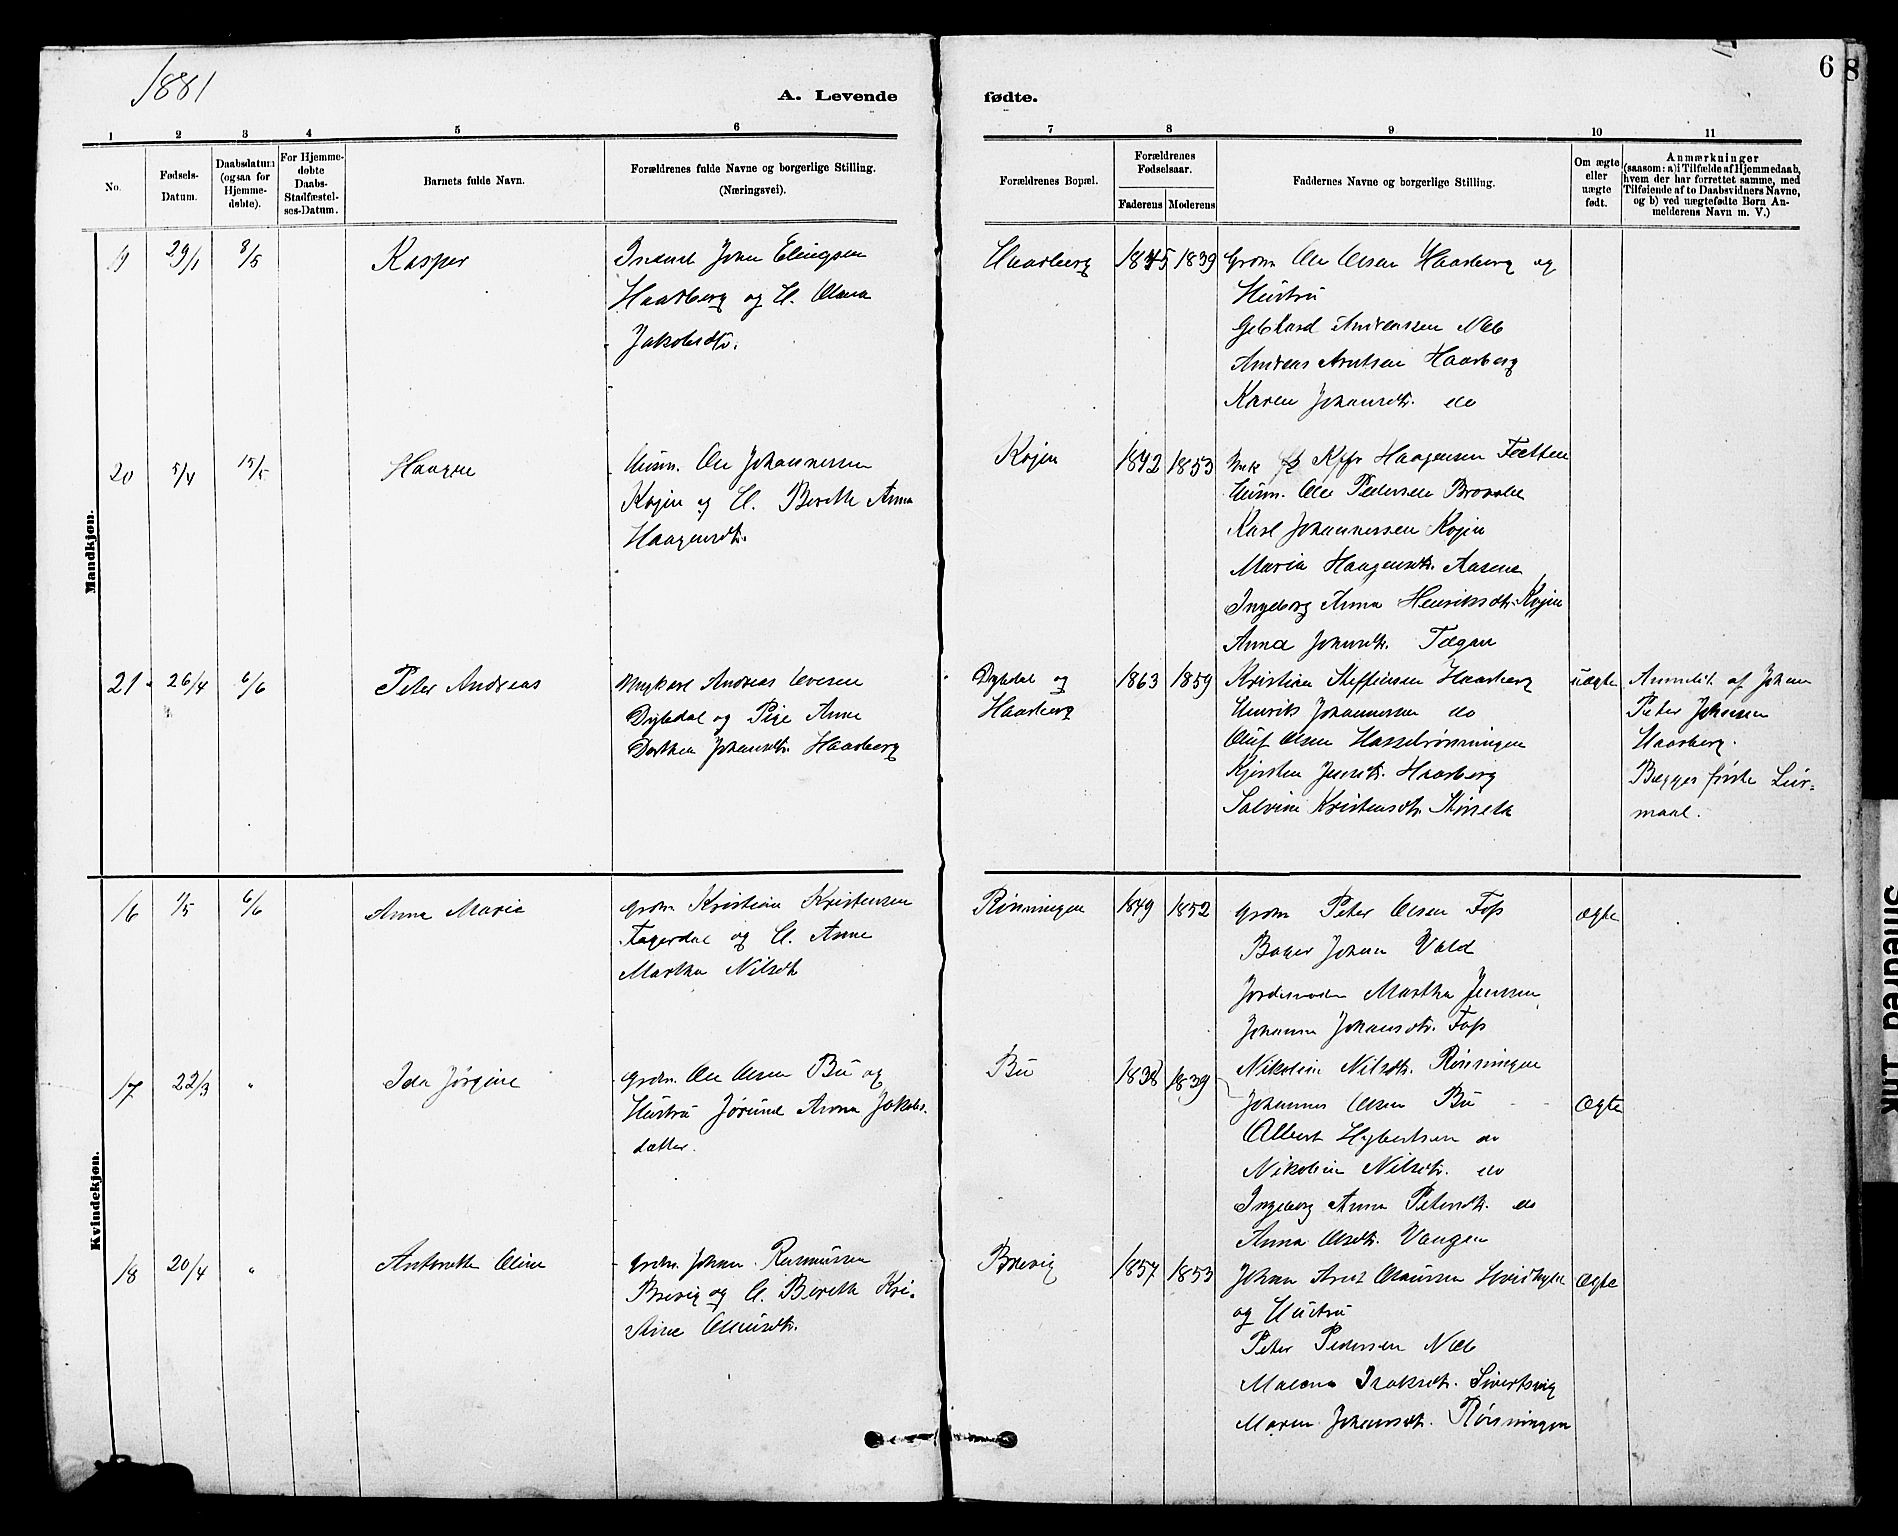 1881
A. Levende
fødte.
6
8
1
2
3
4
5
6
7
8
9
10
11
No.
Fødsels-
Datum.
Daabsdatum
(ogsaa for
Hjemme-
døbte).
For Hjemme-
døbte
Daabs-
Stadfæstel-
ses-Datum.
Barnets fulde Navn.
Forældrenes fulde Navne og borgerlige Stilling.
(Næringsvei).
Forældrenes Bopæl.
Forældrenes
Fødselsaar.
Faderens
Moderens
Faddernes Navne og borgerlige Stilling.
Om ægte
eller
uægte
født.
Anmærkninger
(saasom: a) i Tilfælde af Hjemmedaab,
hvem der har forrettet samme, med
Tilføiende af to Daabsvidners Navne,
og b) ved uægtefødte Børn An-
melderens Navn m. V.)
Mandkjøn.
19
29/1
8/5
Kasper
Johan Elingsen
Haarberg og H. Olava
Jakobsdtr.
Haarberg
1845
1839
Grdm Ole Olsen Haarberg og
Hustru
Gebhard Andreassen Næb
Andreas Arntsen Haarberg
Karen Johansdtr. do
20
5/4
15/5
Haagen
Husm. Ole Johannessen
Kojen og H. Berethe Anna
Haagensdtr.
Kojen
1842
1853
Haagensen Fætten
Husm. Ole Pedersen
Karl Johannessen Kojen
Maria Haagensdtr. Aasene
Ingeborg Anna Henriksdtr. Kojen
Anna Johnsdtr.
21
26/4
6/6
Peter Andreas
Ungkarl Andreas Iversen
Dybdal og Pige Anne
Dorthea Johansdtr. Haarberg
Dybdal og
Haarberg
1863
1859
Kristian Steffensen Haarberg
Henrik Johannessen do
Oluf Olsen Hasselrønningen
Kjersten Jensdtr. Haarberg
Salvine Kristensdtr.
uægte
Anmeldt af Johan
Peter Johnsen
Haarberg.
Begges første Leir-
maal.
Kvindekjøn.
16
1/5
6/6
Anna Marie
Grdm Kristian Kristensen
Fagerdal og H. Anne
Martha Nilsdtr
Rønningen
1849
1852
Grdm Peter Olsen Foss
Bager Johan Vold
Jordemoder Martha Jenssen
Johanna Johansdtr. Foss
Nikoline Nilsdtr. Rønningen
ægte
17
22/3
"
Ida Jørgine
Grdm. Ole Olsen Bu og
Hustru Jørund Anna Jakobs-
datter.
Bu
1838
1839
Johannes Olsen Bu
Albert Hybertsen do
Nikoline Nilsdtr. do
Ingeborg Anna Petersdtr. do
Anna Olsdtr. Vangen
Ægte
18
20/4
"
Antonette Oline
Grdm. Johan Rasmussen
Brevig og H. Berethe Kri-
stine Olausdtr.
Brevig
1857
1853
Johan Arnt Olaussen
og Hustru
Peter Pedersen Næb
Malena Isaksdtr. Sivertsvig
Maren Johansdtr. Rønningen
Ægte